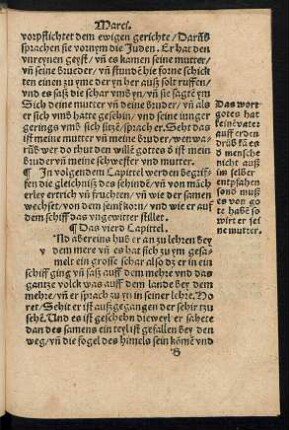 Marci.
vorpflichtet dem ewigen gerichte/ Darũb
sprachen sie vor nym die Juden. Er hat den
vnreynen geyst/ vñ es kamen seine mutter/
vñ seine brueder/ vñ stundẽ hie forne schick
ten einen zu yme der yn her auß solt ruffen/
vnd es saß die schar vmb yn/ vñ sie sagtẽ ym
Sich deine mutter vñ deine bruder/ vñ als
er sich vmb hatte geschin/ vnd seine iunger
gerings vmb sich sitzẽ/ sprach er. Seht das
ist meine mutter vñ meine bruder/ wen war
rũb wer do thut den wille gottes ð ist mein
bruder vñ meine schwester vnd mutter.
¶ In volgendem Capittel werden begriff
fen die gleichniß des sehindẽ/ vñ von mäch
erley ertrich vñ fruchten/ vñ wie der samen
wechset/ von dem senifkorn/ vnd wie er auf
dem schiff das vngewitter stillet.
¶ Das vierd Capittel.
Nd aber eins hub er an zu lehren bey
v dem mere vñ es hat sich zu ym gesa
melt ein grosse schar also dz er in ein
schiff ging vñ saß auff dem mehr/ vnd das
gantze volck was auff dem lande bey dem
mehre/ vñ er sprach zu yn in seiner lehre. Ho
ret/ Sehit er ist außgegangen der sehir tzu
sehẽ. Vnd es ist geschehn die weyl er sahete
dan des samens ein teyl ist gefallen bey den
weg/ vñ die fogel des himels sein kõmẽ vnd
Das wort
gotes hat
keinẽ vater
auff erden
drũb kã es
ð mensche
nicht auß
im selber
entpfahen
sond muß
es von go
te habẽ so
wirt er sei
ne mutter.